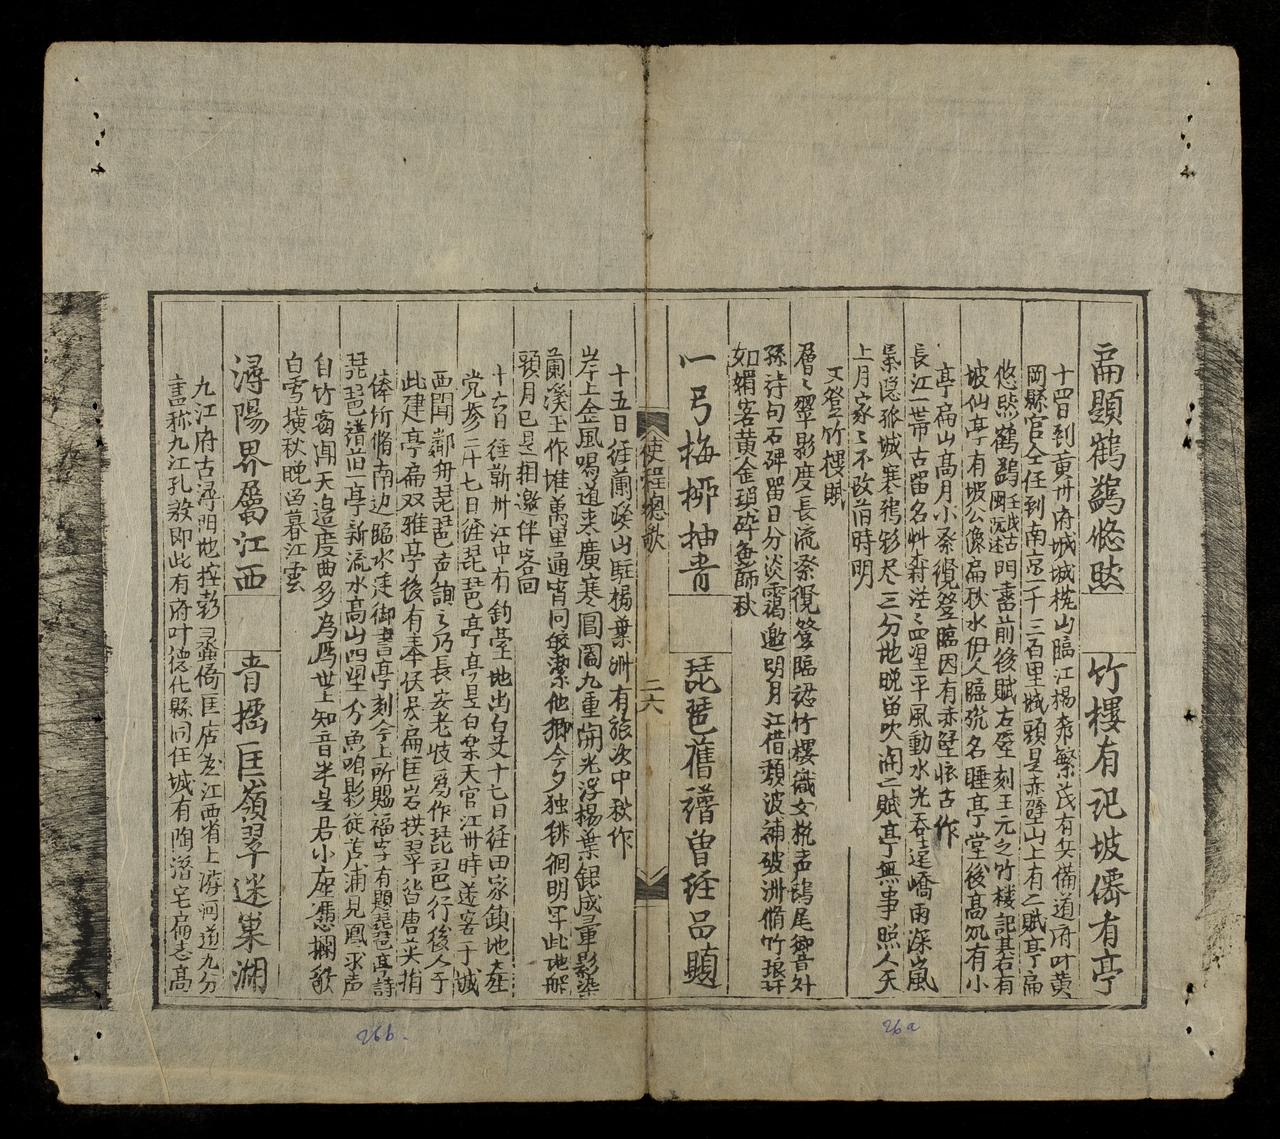 扁顯鶴鷀悠然 竹樓有記坡僊有亭
十四日到黃州府城城枕山臨江楊舟繁茂有兵備道府叶黃
岡縣官仝任到南京二千三百里城頭是赤壁山上有二賦亭扁
悠然鶴鷀門畫前後賦右壁刻王元之竹楼記基右有
坡仙亭有坡公像扁秋水伊人臨皃名睡亭堂後高処有小
亭扁山高月小乘俔登臨因有赤壁怀古作
長江一带古留名艸莽茫〻四望平風動水光吞遠嶠雨深嵐
氣隐孤城寒鴉影尽三分地晚笛吹闹二賦亭無事照人天
上月家〻不改前時明
又登竹樓賦
層〻翠影度長流乘俔登臨認竹樓織女梳声鴟尾響外
孫诗句石碑留日分淡靄邀明月江借頹波補破洲脩竹琅玕
如媚客黄金瑣碎毎飾秋
一弓梅栁抽青 琵琶舊譜曾経品題
使程總歌
二六
十五日徃蘭溪出駐楊葉洲有旅次中秋作
岸上金風喝道来廣寒圓闔九重開光浮楊葉銀成暈影染
蘭溪玉作堆萬里通宵同皎潔他鄉今夕独徘徊明年此地觧
頭月已是相邀伴客回
十六日徃蘄州江中有釣臺地出白艾十七日径田家鎮地產
党参二十七日徃琵琶亭亭昱白樂天官江州時送客于城
西聞鄰舟琵琶声詢之乃長安老妓為作琵琶行後人于
此建亭扁双雅亭後有奉伏吳扁匡岩拱翠皆唐英指
俸所脩南边臨水走御書亭刻今上所賜福字有題琵琶亭詩
琵琶譜旧一亭新流水高山四望分魚唼影従芦浦見鳳求声
自竹窗闻天邉度曲多為厲世上知音半是君小座凭欄歌
白雪横秋晚晉暮江雲
潯陽界屬江西 音摇匡嶺翠迷巢湖
九江府古潯阳地控彭蠡倚匡庐是江西省上游河道九分
書称九江孔殷即此有府叶德化縣同任城有陶潜宅扁志高
26b.
26a